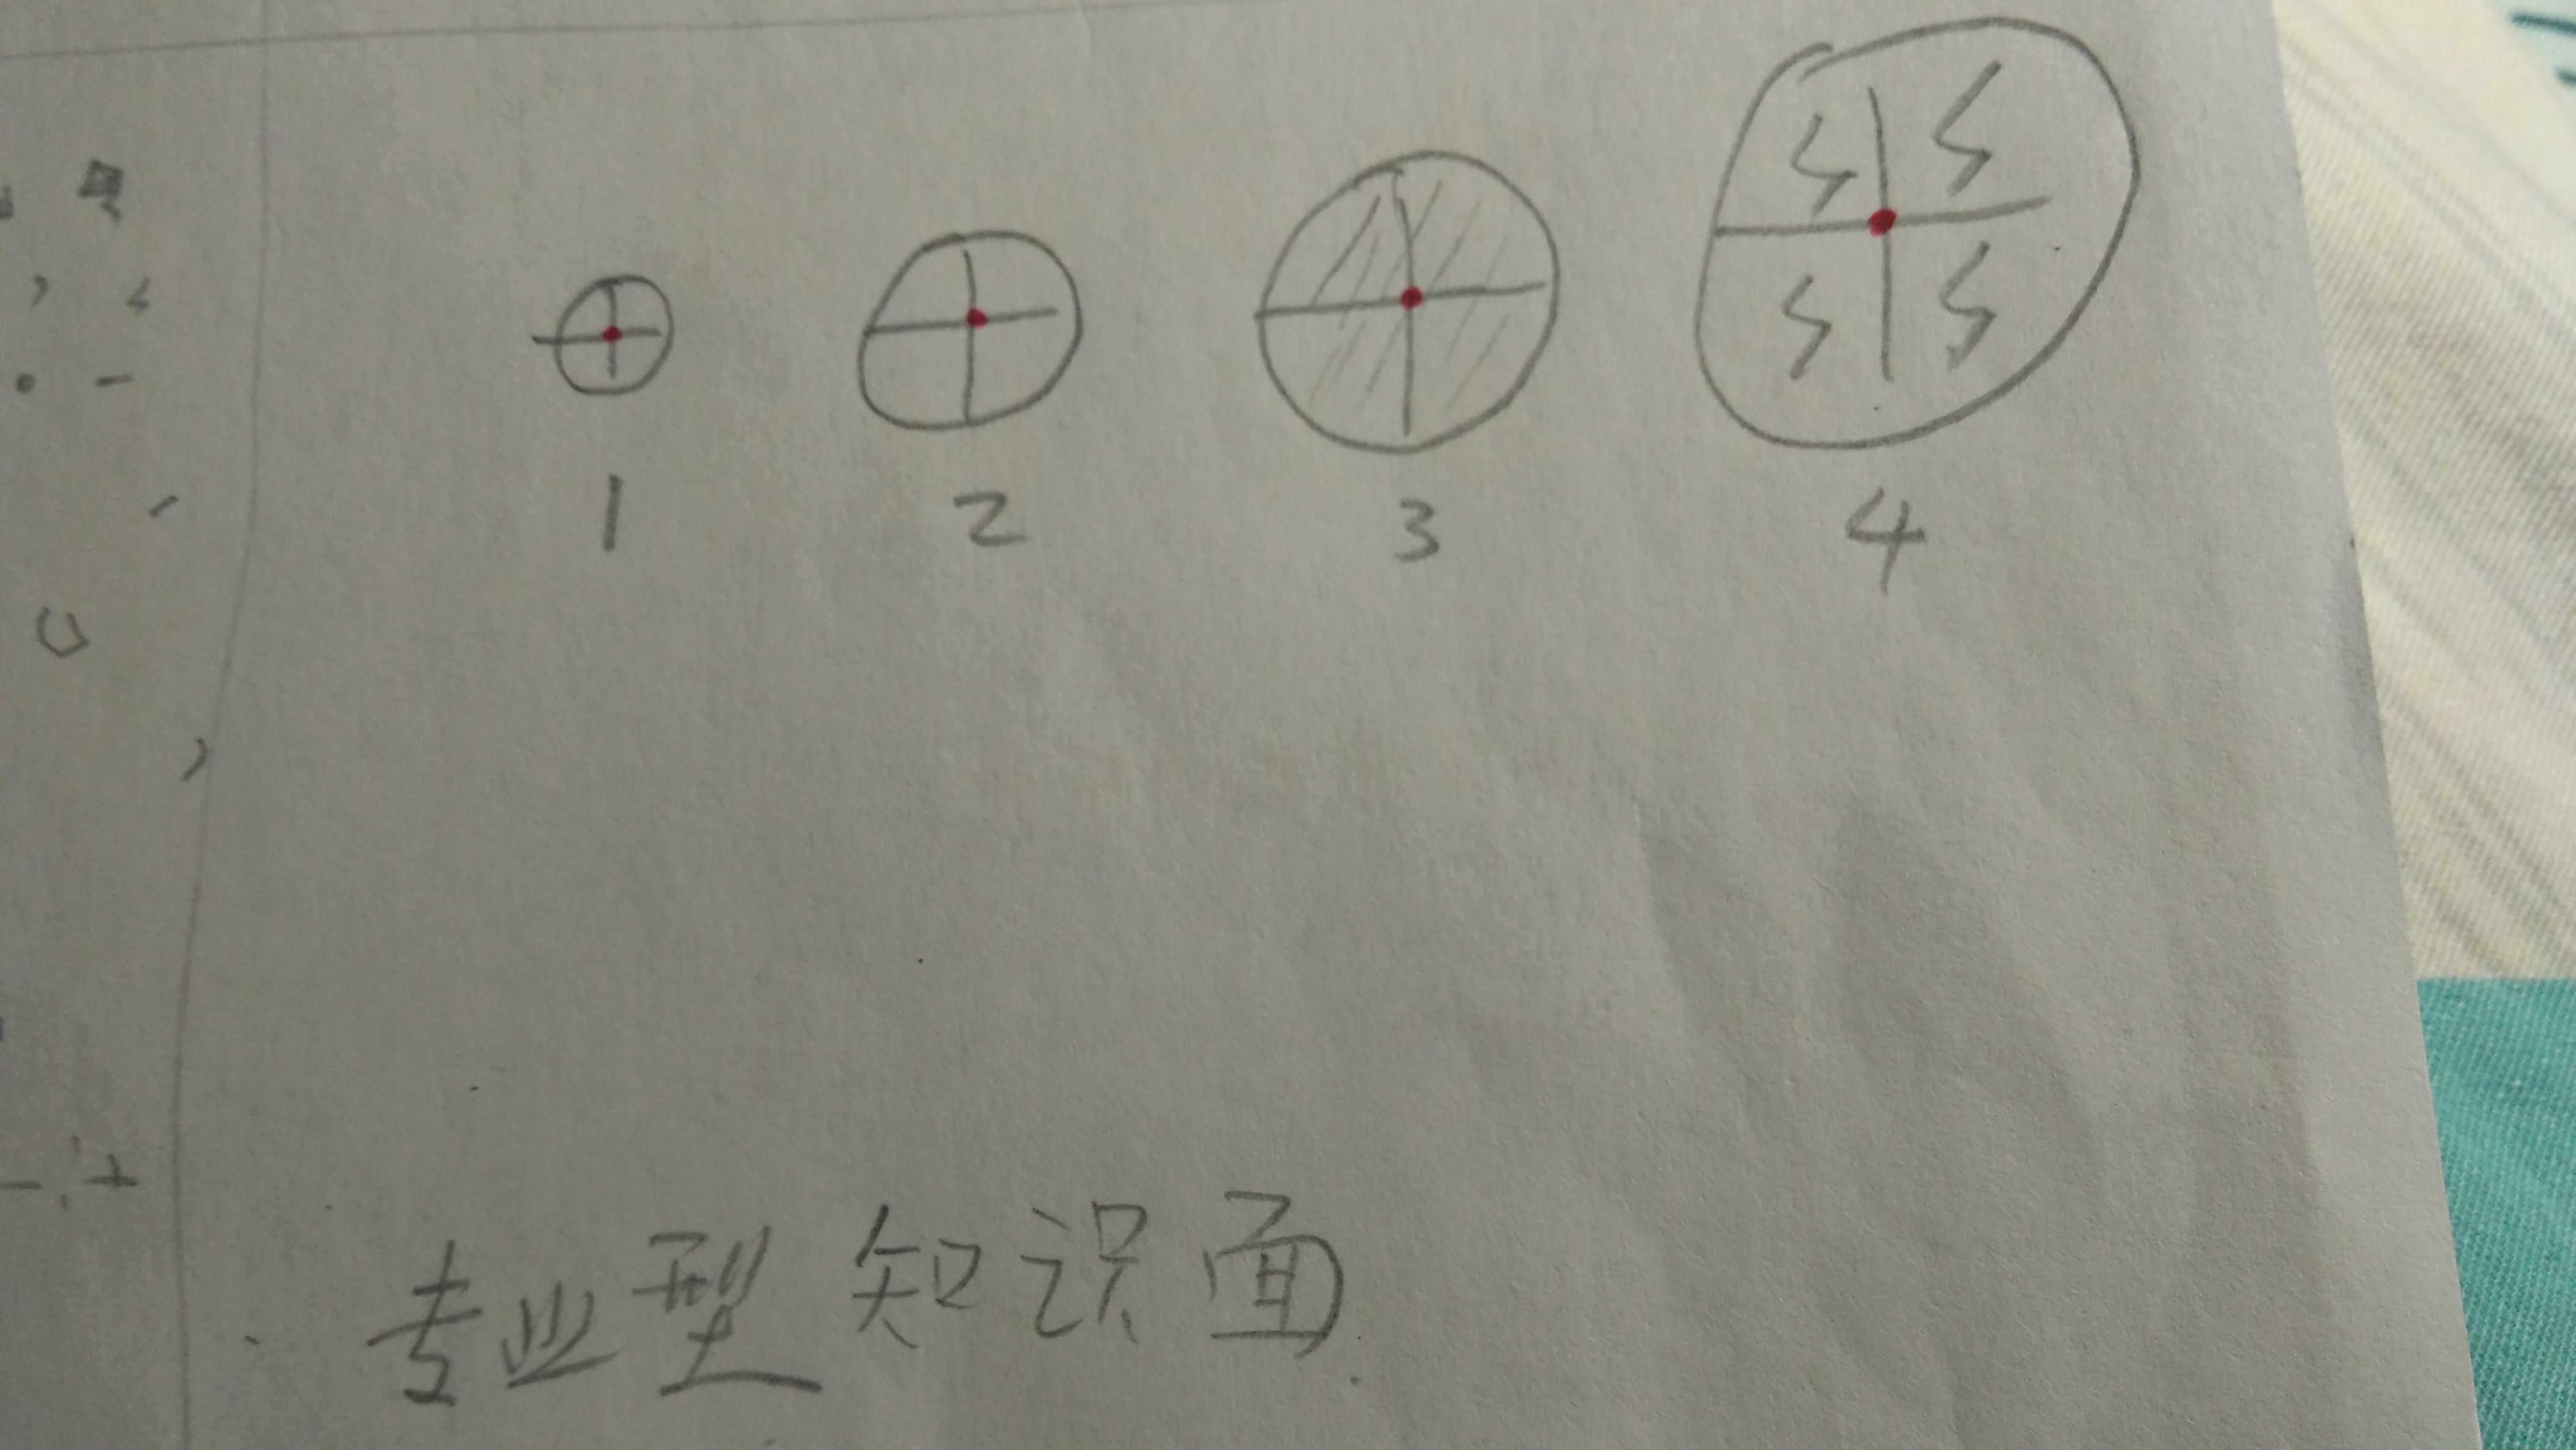 1 2 3 4
专业型知识面